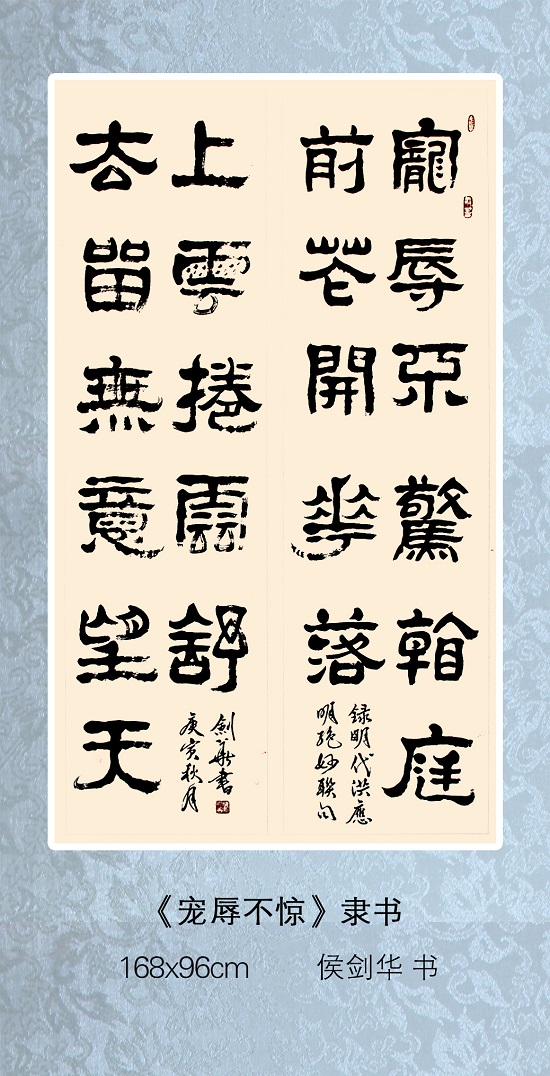 寵辱不驚看庭
前花開華落
録明代洪應
明絕妙聯句
去留無意望天
上雲捲雲舒
庚寅秋月
劍華書
《宠辱不惊》隶书
168x96cm 侯剑华 书